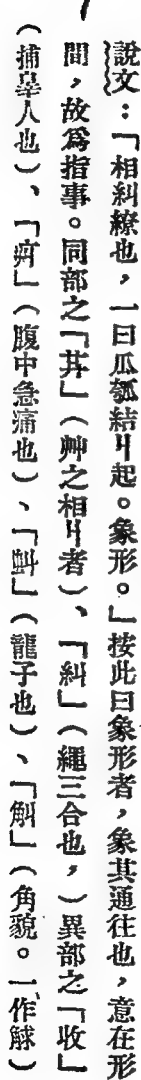 說文：「相糾繚也，一曰瓜瓠結丩起。象形。」按此曰象形者，象其通往也，意在形
間，故爲指事。同部之「茻」（艸之相丩者）、「糾」（繩三合也，）異部之「收」
（捕辠人也）、「疛」（腹中急痛也）、「虯」（龍子也）、「觓」（角貌。一作觩）